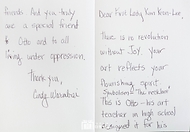 friends And you truly
are a special friend
to Otto and to all
living under oppression.
Thank you,
Cindy Warmbier
Dear First Lady Kim Keon-Hee,
There is no revelation
without Joy. Your
art reflects your
Nourishing spirit.
This is Otto - his art
teacher in high school
designed it for his